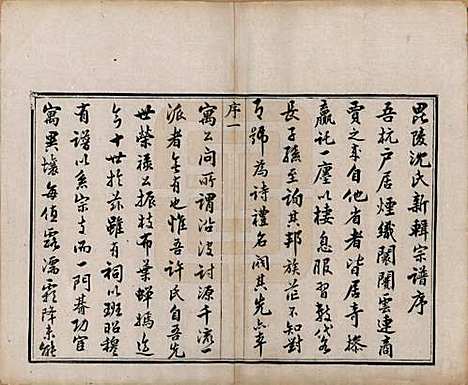 毘陵沈氏新輯宗譜序
吾杭戶居煙織闤闠雲連商
賈之來自他省者皆居奇操
贏託一廛以棲息服習數代各
長子孫至詢其邦族茫不知對
即號為詩禮名閥其先亦率
序一
寓公問所謂沿波討源千流一
派者無有也惟吾許氏自吾先
世榮祿公振枝布葉蟬嫣迄
今十世於茲雖有祠以班昭穆
有譜以系宗支而一門朞功宦
寓異壤每值露濡霜降未能